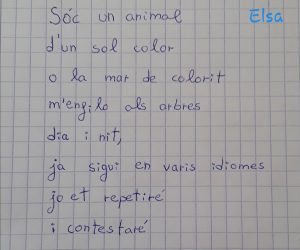 Sóc un animal
Elsa
d'un sol color
o la mar de colorit
m'enfilo als arbres
dia i nit,
ja sigui en varis idiomes
jo et repetiré
i contestaré